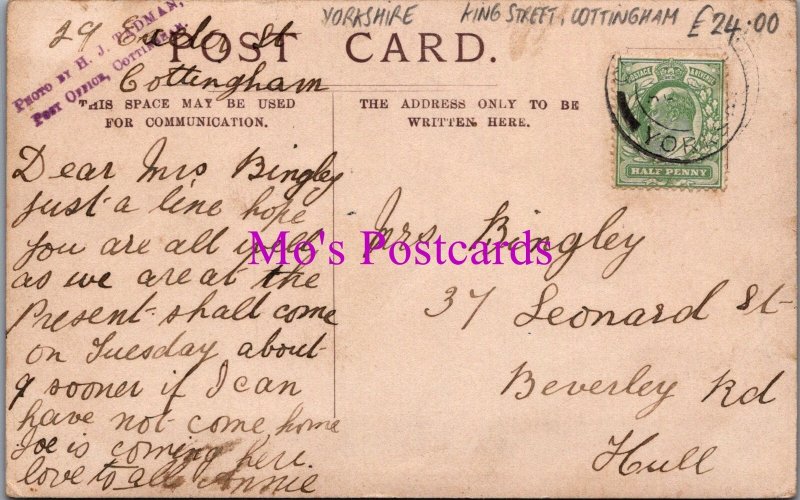 YORKSHIRE KING STREET, COTTINGHAM £24.00
PHOTO BY H. J. TADMAN,
POST OFFICE, COTTINGHAM.
29 St
Cottingham
POST CARD.
THIS SPACE MAY BE USED
FOR COMMUNICATION.
THE ADDRESS ONLY TO BE
WRITTEN HERE.
POSTAGE & REVENUE
HALF PENNY
YORK
Dear Mrs Bingley
just a line hope
you are all well
as we are at the
Present shall come
on Tuesday about
9 sooner if I can
have not come home
Joe is coming here
love to all Annie
Mrs. Bingley
37 Leonard St
Beverley Rd
Hull
Mo's Postcards